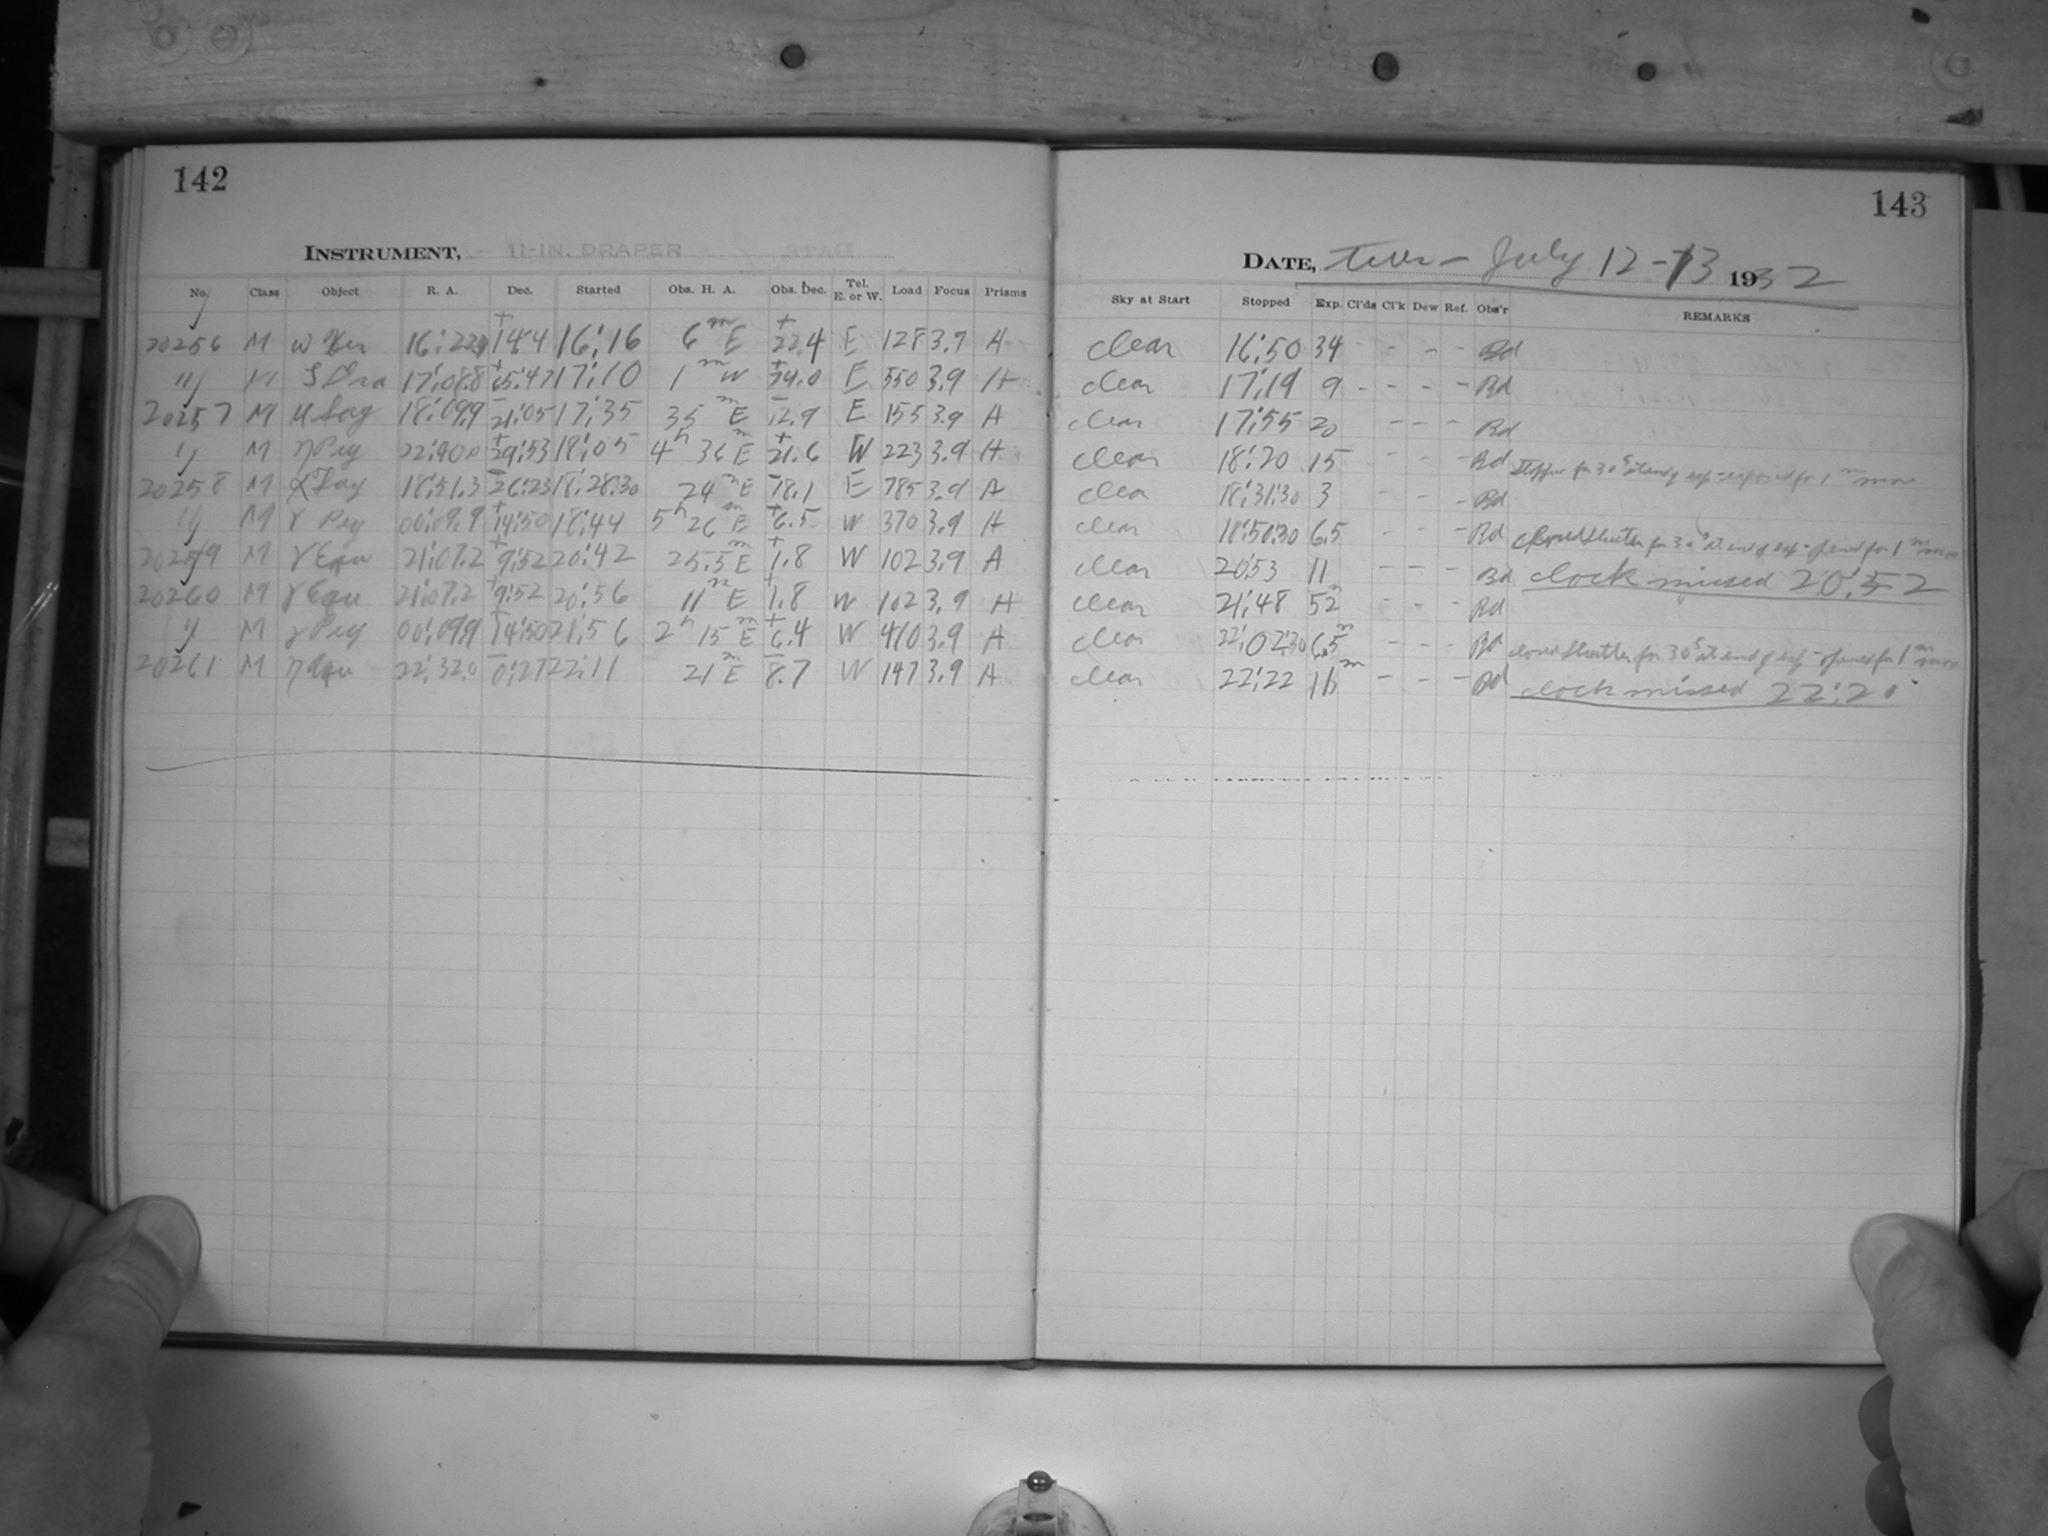 142
INSTRUMENT, 11-IN. DRAPER
No. Class Object R. A. Dec. Started Obs. H. A. Obs. Dec. Tel. E. or W. Load Focus Prisms
20256 M ω Her 16:22.0 +14:4 16:16 6m E +22.4 E 128 3.9 A
" M ζ Dra 17:08.8 +65:47 17:10 1m W +74.0 E 550 3.9 A
20257 M μ Sag 18:09.9 -21:05 17:35 35m E -12.9 E 155 3.9 A
" M η Peg 22:40.0 +29:53 18:05 4h 36m E +21.6 W 223 3.9 A
20258 M Sag 18:51.3 -26:23 18:28:30 24m E -18.1 E 785 3.9 A
" M γ Peg 00:09.9 +14:50 18:44 5h 26m E +6.5 W 370 3.9 A
20259 M γ Equ 21:07.2 +9:52 20:42 25.5m E +1.8 W 102 3.9 A
20260 M γ Equ 21:07.2 +9:52 20:56 11m E +1.8 W 102 3.9 A
" M γ Peg 00:09.9 +14:50 21:56 2h 15m E +6.4 W 410 3.9 A
20261 M η Aqu 22:32.0 -0:27 22:11 21m E -8.7 W 147 3.9 A
143
DATE, Tues - July 12-13 1932
Sky at Start Stopped Exp. Cl'ds Cl'k Dew Ref. Obs'r REMARKS
clear 16:50 34 - - - - Bd
clear 17:19 9 - - - - Bd
clear 17:55 20 - - - Bd
clear 18:20 15 - - - Bd for 30s at end of exp - exposed for 1m more
clear 18:31:30 3 - - - Bd
clear 18:50:30 6.5 - - - Bd closed shutter for 30s at end of exp - opened for 1m more
clear 20:53 11 - - - Bd clock missed 20:52
clear 21:48 52m - - - Bd
clear 22:02:30 6.5m - - - Bd closed shutter for 30s at end of exp - opened for 1m more
clear 22:22 11m - - - Bd clock missed 22:20